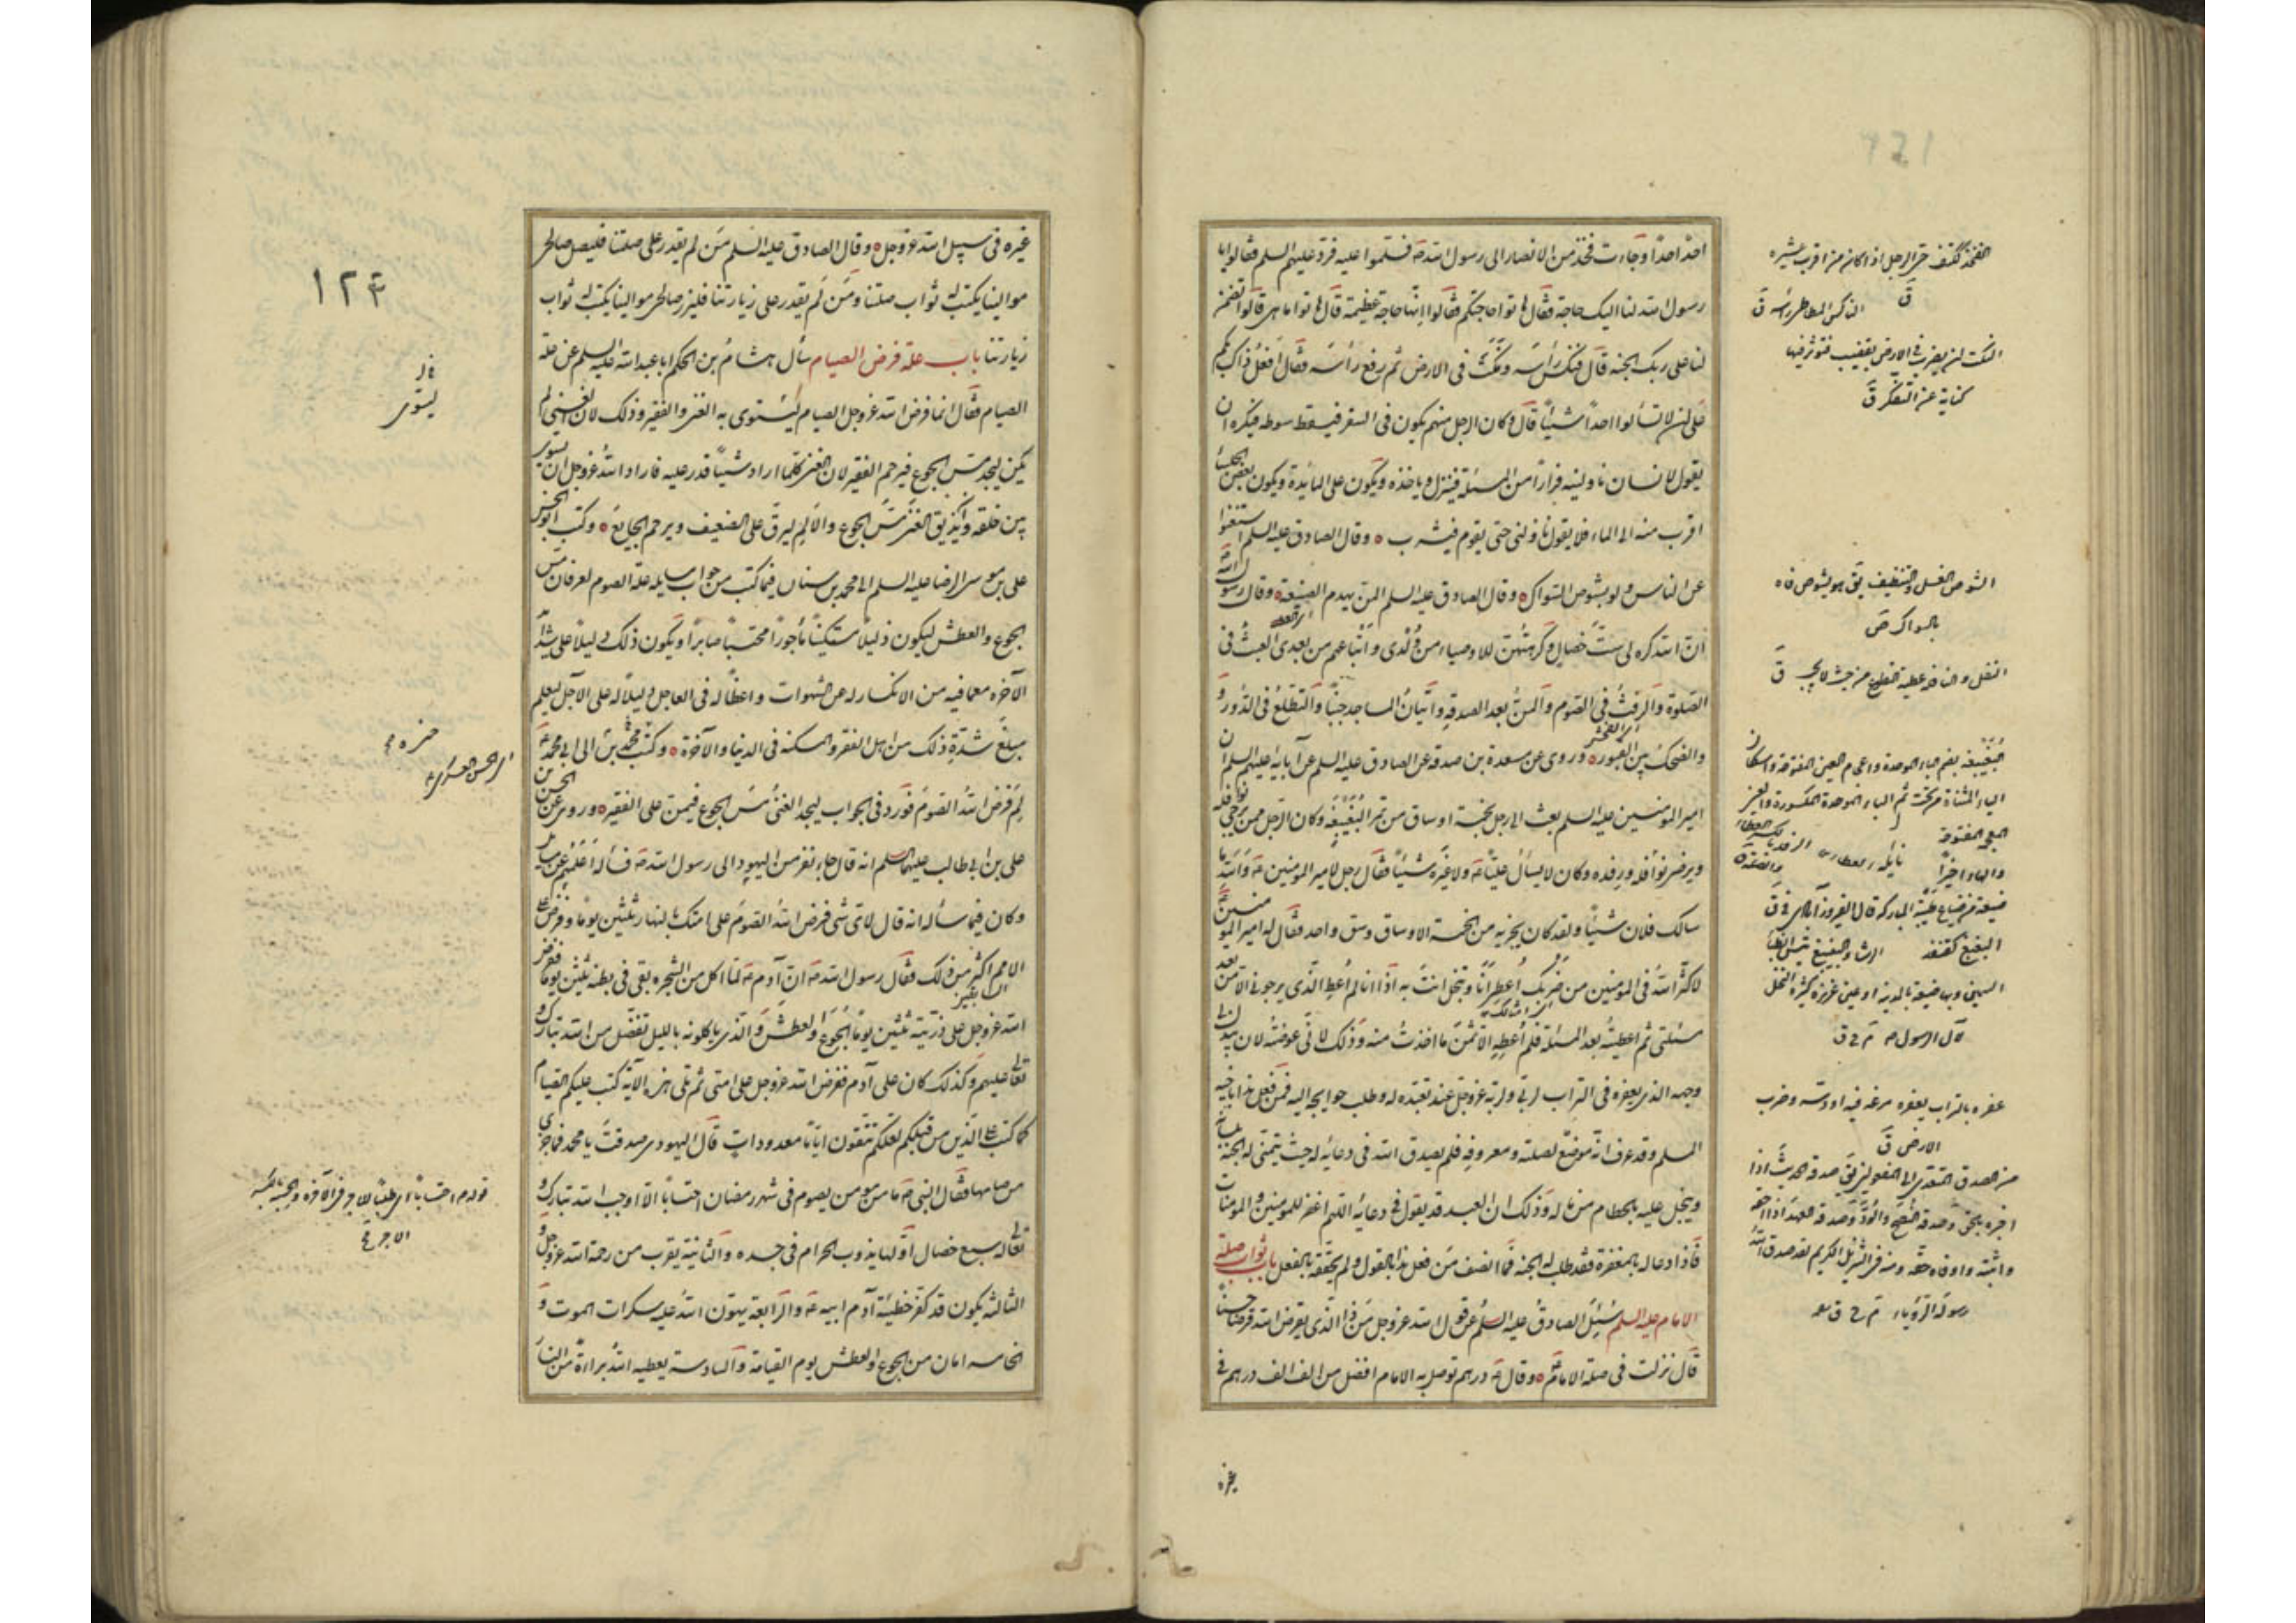 احدا احدا وجاءت فخذ من الانصار الى رسول الله ص فسلموا عليه فرد عليهم السلم فقالوا يا
رسول الله لنا اليك حاجة فقال هاتوا حاجتكم فقالوا انها حاجة عظيمة قال هاتوا ما هى قالوا تضمن
لنا على ربك الجنه قال فنكس رأسه ونكت فى الارض ثم رفع رأسه فقال افعل ذاك بكم
على ان لا تسألوا احدا شيئا قال وكان الرجل منهم يكون فى السفر فيسقط سوطه فيكره ان
يقول لانسان ناولنيه فرارا من المسئلة فينزل وياخذه ويكون على المايدة ويكون بعض الجلساء
اقرب منه الى الماء فلا يقول ناولنى حتى يقوم فيشرب وقال الصادق عليه السلم استغنوا
عن الناس ولو بشوص السواك وقال الصادق عليه السلم المن يهدم الصنيعة وقال رسول الله ص
ان الله كره لى ست خصال وكرهتهن للاوصياء من ولدى واتباعهم من بعدى العبث فى
الصلوة والرفث فى الصوم والمن بعد الصدقه واتيان المساجد جنبا والتطلع فى الدور و
والضحك بين القبور وروى عن مسعدة بن صدقه عن الصادق عليه السلم عن آبايه عليهم السلم ان
امير المؤمنين عليه السلم بعث الى رجل بخمسة اوساق من تمر البغيبغه وكان الرجل ممن يرجى نوافله
ويرضى نوافله ورفده وكان لا يسأل عليا ع ولا غيره شيئا فقال رجل لامير المؤمنين ع والله ما
سالك فلان شيئا ولقد كان يجزيه من الخمسة الاوساق وسق واحد فقال له امير المؤمنين ع
لا كثر الله فى المؤمنين من ضربك اعطى انا وتبخل انت به اذا انا لم اعط الذى يرجونى الا من بعد
مسئلتى ثم اعطيته بعد المسئلة فلم اعطه الا ثمن ما اخذت منه وذلك لانى عرضته لان يبذل لى
وجهه الذى يعفره فى التراب لربى ولربه عز وجل عند تعبده له وطلب حوايجه اليه فمن فعل هذا باخيه
المسلم وقد عرف انه موضع لصلته ومعروفه فلم يصدق الله فى دعائه له حيث يتمنى له الجنة بلسانه
ويبخل عليه بالحطام من ماله وذلك ان العبد قد يقول فى دعائه اللهم اغفر للمؤمنين والمؤمنات
فاذا دعا له بالمغفرة فقد طلب له الجنه فما انصف من فعل هذا بالقول ولم يحققه بالفعل باب ثواب صلة
الامام عليه السلم سئل الصادق عليه السلم عن قول الله عز وجل من ذا الذى يقرض الله قرضا حسنا
قال نزلت فى صلة الامام وقال ع درهم توصل به الامام افضل من الف الف درهم فى
غيره
الفخذ ككتف حى الرجل اذا كان من اقرب عشيرته
ق
الناكس المطاطئ راسه ق
النكت ان يضرب فى الارض بقضيب فتؤثر فيها
كناية عن التفكر ق
الشوص الغسل والتنظيف يق هو يشوص فاه
بالسواك ص
بغيبغه بضم الباء الموحدة واعجام الغين المفتوحة واسكان
الياء المثناة من تحت ثم الباء الموحدة المكسورة والغين
المعجمة المفتوحة
والهاء اخيرا
ضيعة من ضياع طيبة المباركة قال الفيروزآبادى فى ق
البغبغ كقنفذ
السمين وبها ضيعة بالمدينة او عين غزيرة كثيرة النخل
لآل الرسول ص
عفره بالتراب يعفره مرغه فيه او دسه وضرب
الارض ق
غيره فى سبيل الله عز وجل وقال الصادق عليه السلم من لم يقدر على صلتنا فليصل صالحى
موالينا يكتب له ثواب صلتنا ومن لم يقدر على زيارتنا فليزر صالحى موالينا يكتب له ثواب
زيارتنا باب علة فرض الصيام سأل هشام بن الحكم ابا عبد الله عليه السلم عن علة
الصيام فقال انما فرض الله عز وجل الصيام ليستوى به الغنى والفقير وذلك لان الغنى لم
يكن ليجد مس الجوع فيرحم الفقير لان الغنى كلما اراد شيئا قدر عليه فاراد الله عز وجل ان يسوى
بين خلقه وان يذيق الغنى مس الجوع والالم ليرق على الضعيف ويرحم الجايع وكتب ابو الحسن
على بن موسى الرضا عليه السلم الى محمد بن سنان فيما كتب من جواب مسايله علة الصوم لعرفان مس
الجوع والعطش ليكون ذليلا مستكينا مأجورا محتسبا صابرا ويكون ذلك دليلا على شدائد
الآخره مع ما فيه من الانكسار له عن الشهوات واعظا له فى العاجل دليلا له على الآجل ليعلم
مبلغ شدة ذلك من اهل الفقر والمسكنه فى الدنيا والآخرة وكتب حمزة بن محمد الى ابى محمد ع
لم فرض الله الصوم فورد فى الجواب ليجد الغنى مس الجوع فيمن على الفقير وروى عن الحسن بن
على بن ابى طالب عليهما السلم انه قال جاء نفر من اليهود الى رسول الله ص فسأله اعلمهم عن مسايل
وكان فيما سأله انه قال لاى شى فرض الله الصوم على امتك بالنهار ثلثين يوما وفرض على
الامم اكثر من ذلك فقال رسول الله ص ان آدم ع لما اكل من الشجره بقى فى بطنه ثلثين يوما ففرض
الله عز وجل على ذريته ثلثين يوما الجوع والعطش والذى ياكلونه بالليل تفضل من الله تبارك و
تعالى عليهم وكذلك كان على آدم ففرض الله عز وجل على امتى ثم تلى هذه الآية كتب عليكم الصيام
كما كتب على الذين من قبلكم لعلكم تتقون اياما معدودات قال اليهودى صدقت يا محمد فما جزى
من صامها فقال النبى ص ما من مؤمن يصوم فى شهر رمضان احتسابا الا اوجب الله تبارك و
تعالى له سبع خصال اولها يذوب الحرام فى جسده والثانية يقرب من رحمة الله عز وجل و
الثالثه يكون قد كفر خطيئة آدم ابيه ع والرابعة يهون الله عليه سكرات الموت و
الخامسه امان من الجوع والعطش يوم القيامة والسادسة يعطيه الله براءة من النار
ليستوى
حمزه